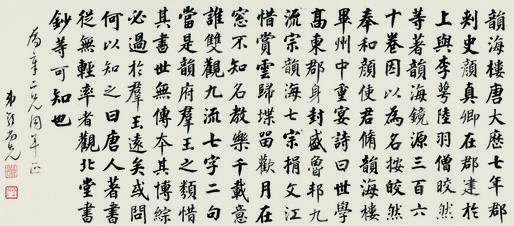 韻海樓唐大歷七年郡
刺史顏真卿在郡建於
上與李萼陸羽僧皎然
等著韻海鏡源三百六
十卷因以為名按皎然
奉和顏使君脩韻海樓
畢州中重宴詩曰世學
高東郡身封盛魯邦九
流宗韻海七字捐文江
惜賞雲歸堞留歡月在
窓不知名教樂千載意
誰雙觀九流七字二句
當是韻府羣玉之類惜
其書世無傳本其博綜
必過於羣玉遠矣或問
何以知之曰唐人著書
從無輕率者觀北堂書
鈔等可知也
二兄同年正
弟